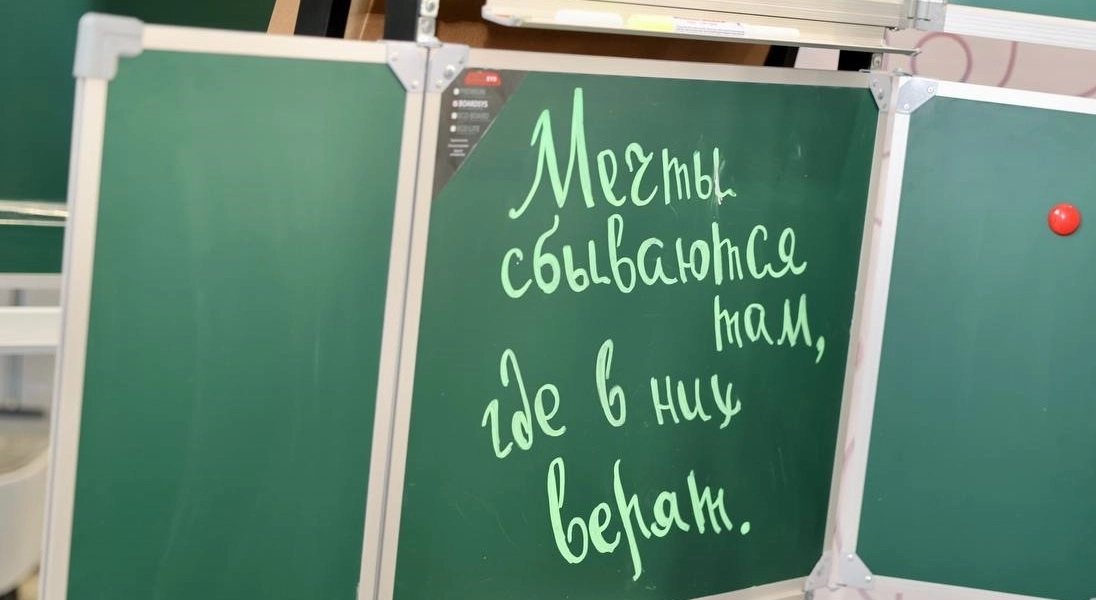 Мечты
сбываются
там,
где в них
верят.
BOARDSYS